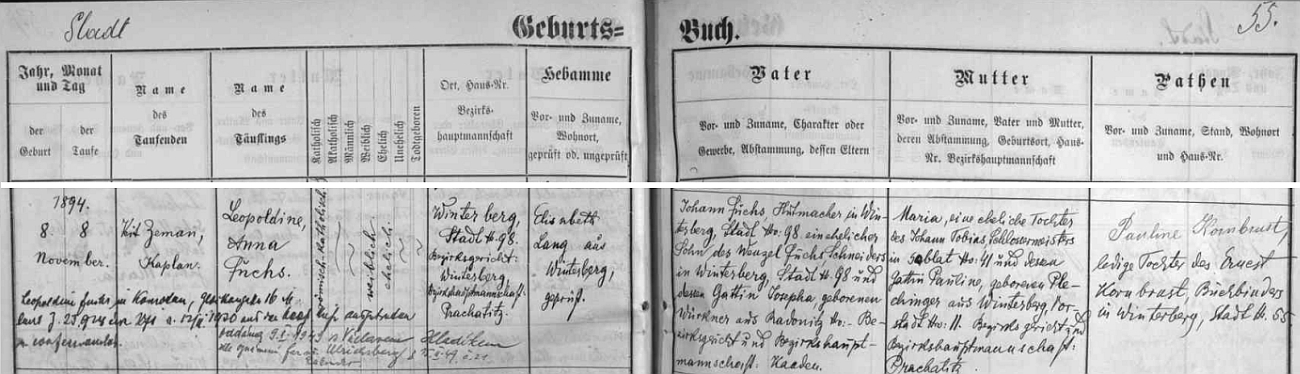 Stadt
Geburts=
Buch.
55.
Jahr, Monat
und Tag
der
Geburt
der
Taufe
Name
des
Taufenden
Name
des
Täuflings
Katholisch
Akatholisch
Männlich
Weiblich
Ehelich
Unehelich
Todtgeboren
Ort, Haus-Nr.
Bezirks-
hauptmannschaft
Hebamme
Vor- und Zuname,
Wohnort,
geprüft od. ungeprüft
Vater
Vor- und Zuname, Charakter oder
Gewerbe, Abstammung, dessen Eltern
Mutter
Vor- und Zuname, Vater und Mutter,
deren Abstammung, Geburtsort, Haus-
Nr. Bezirkshauptmannschaft
Pathen
Vor- und Zuname, Stand, Wohnort
und Haus-Nr.
1894.
8 8
November.
Zeman,
Kaplan.
Leopoldine,
Anna
Fuchs.
römisch-katholisch
weiblich
ehelich.
Winterberg,
Stadt No 98.
Bezirksgericht:
Winterberg,
Bezirkshauptmannschaft:
Prachatitz.
Elisabeth
Lang aus
Winterberg,
geprüf.
Johann Fuchs, Hutmacher in Win-
terberg, Stadt No: 98 ehelicher
Sohn des Wenzel Fuchs Schneiders
in Winterberg, Stadt No 98 und
dessen Gattin Josepha, geborenen
Würkner aus Radonitz No:- Be-
zirksgericht und Bezirkshaupt-
mannschaft: Kaaden.
Maria, eine eheliche Tochter
des Johann Tobias, Schlossermeisters
in Sablat No: 41 und dessen
Gattin Pauline, geborenen Ple-
chinger aus Winterberg, Vor-
stadt No: 11. Bezirksgericht und
Bezirkshauptmannschaft:
Prachatitz.
Pauline Kornbrast,
ledige Tochter des Ernest
Kornbrast, Buchbinders
in Winterberg, Stadt No. 55
Leopoldine Fuchs in Komotau,
1920